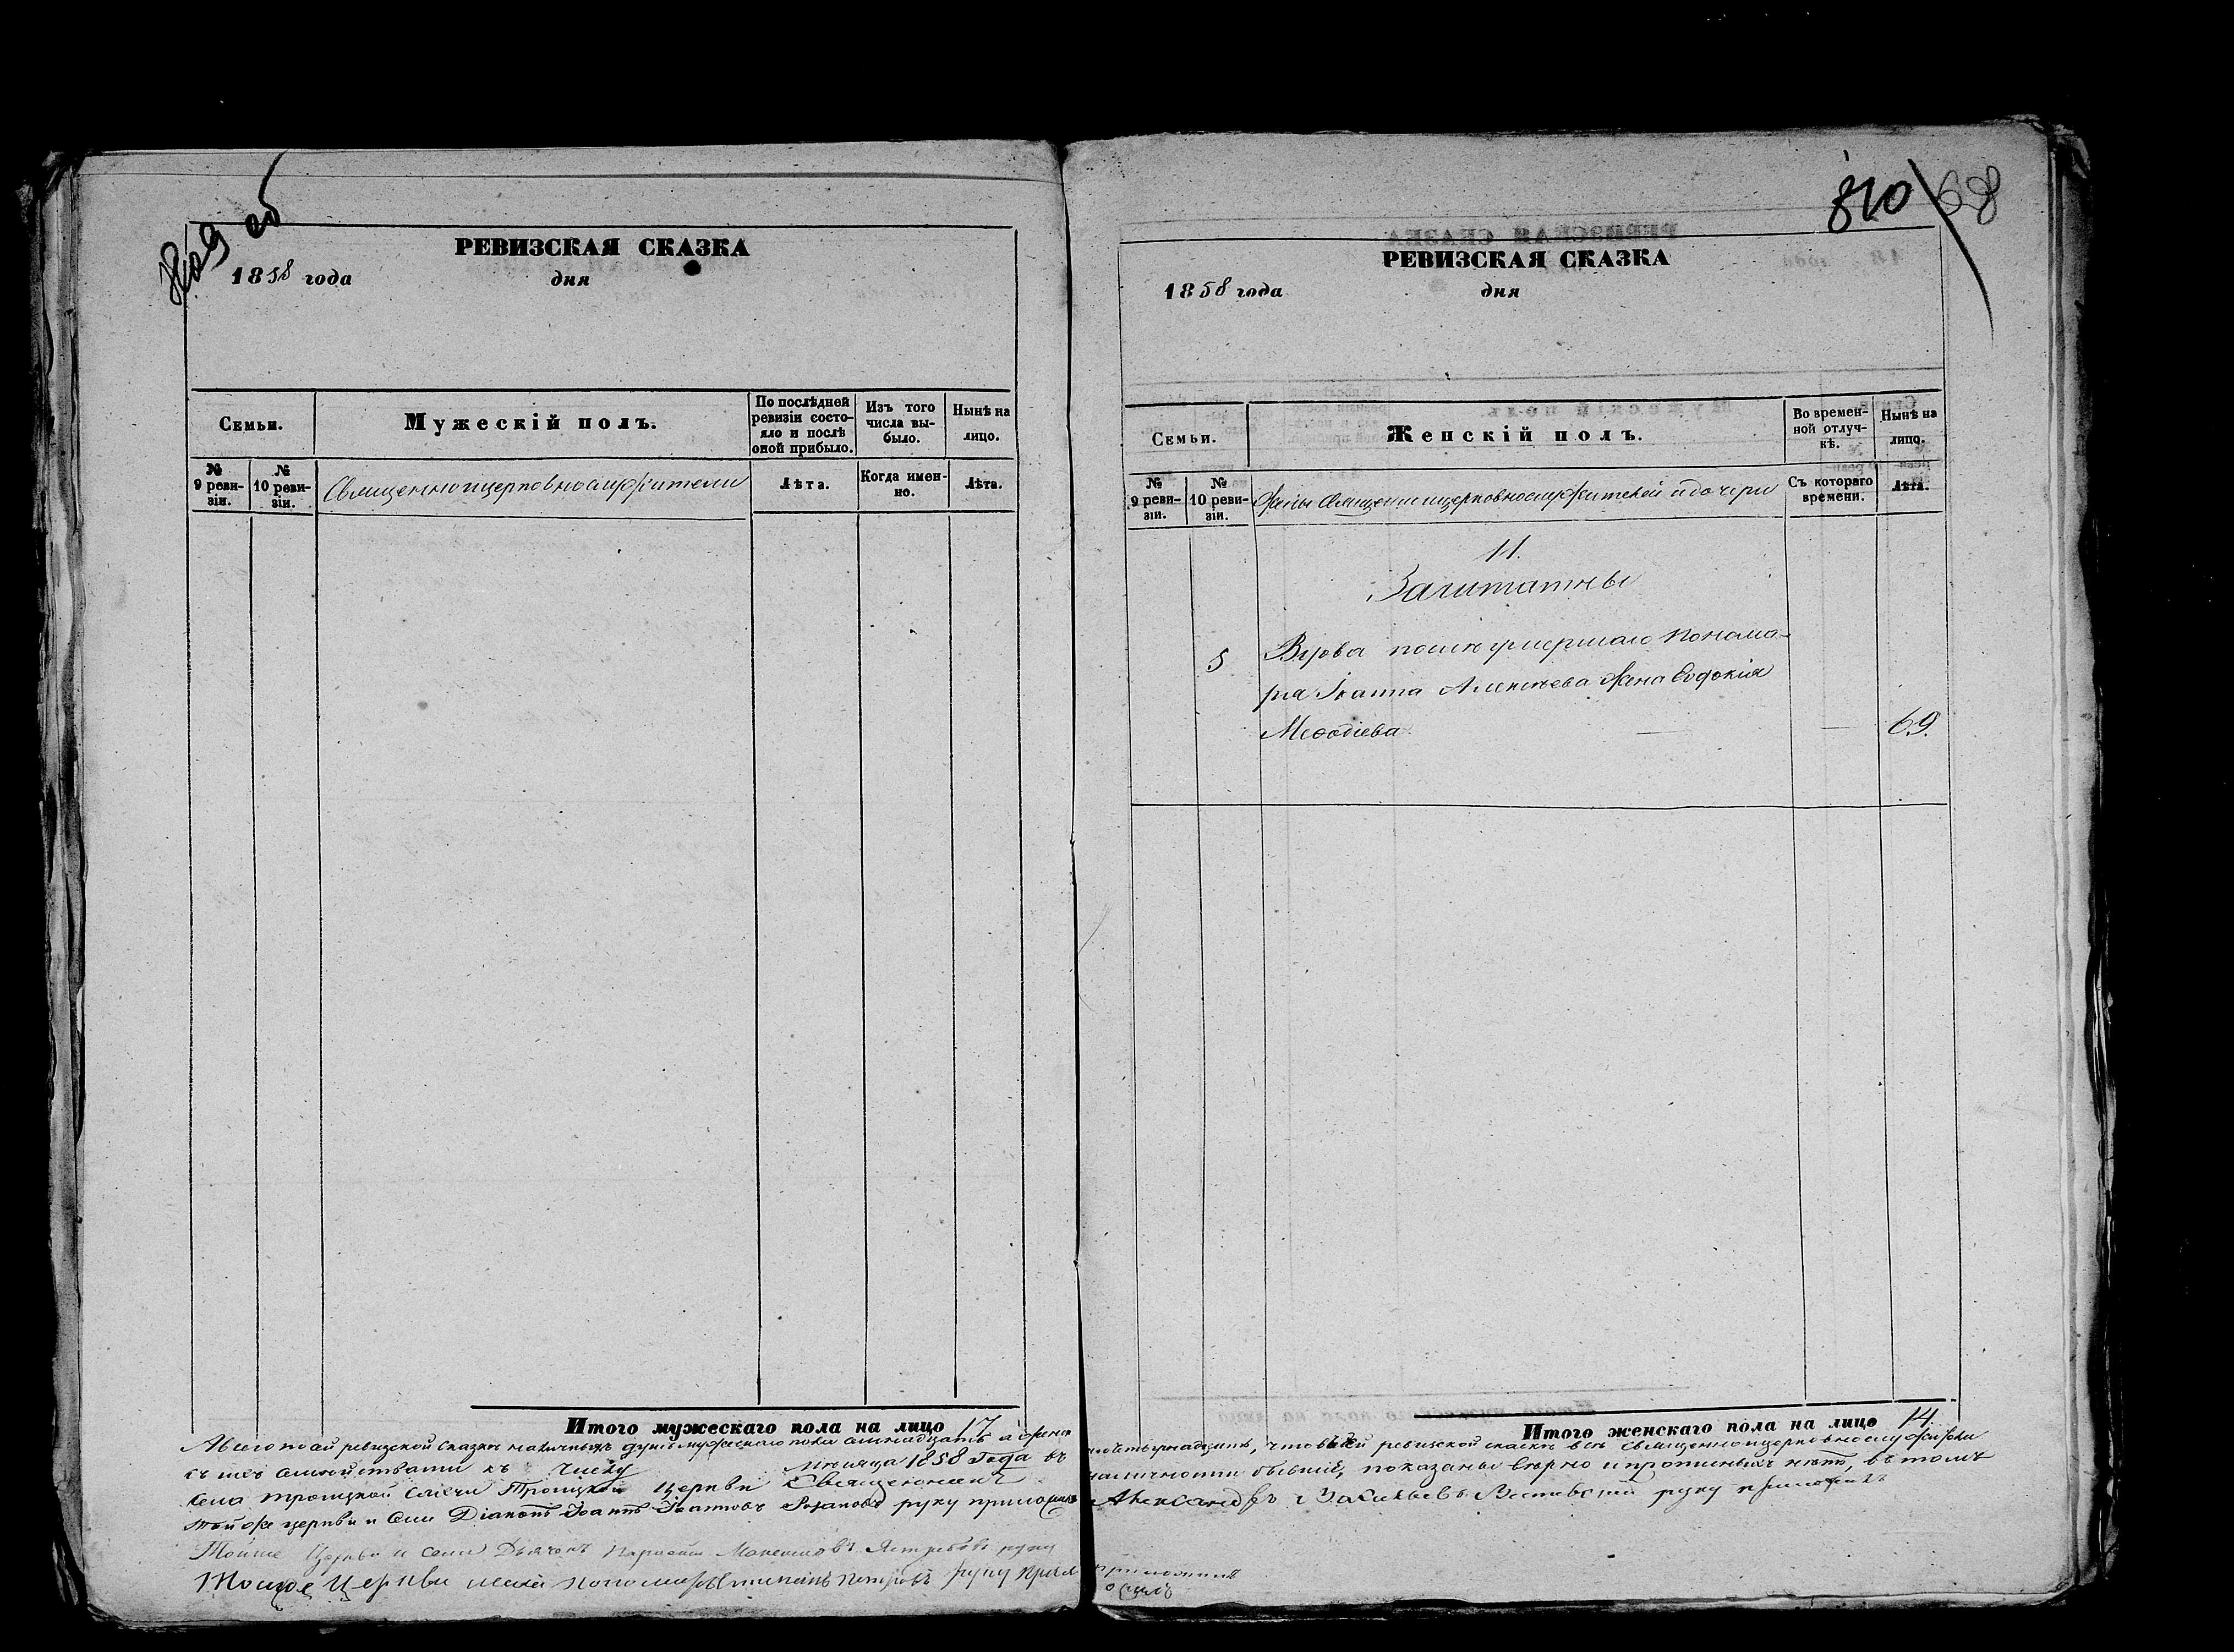 РЕВИЗСКАЯ СКАЗКА
1858 года дня
Семьи.
Мужескій полъ.
По послѣдней ревизіи состояло и послѣ оной прибыло.
Изъ того числа выбыло.
Нынѣ на лицо.
№ 9 ревизіи.
№ 10 ревизіи.
Священноицерковнослужители
Лѣта.
Когда именно.
Лѣта.
Итого мужескаго пола на лицо 17
810
68
РЕВИЗСКАЯ СКАЗКА
1858 года дня
Семьи.
Женскій полъ.
Во временной отлучкѣ.
Нынѣ на лицо.
№ 9 ревизіи.
№ 10 ревизіи.
Жены священноицерковнослужителей и дочери
Съ котораго времени.
Лѣта.
11.
Заштатны
5 Вдова послѣ умершаго понома-
ря Іоанна Алексѣева жена Евдокія
Меѳодіева — — 69.
Итого женскаго пола на лицо 14
А всего по сей ревизской сказкѣ наличныхъ душъ мужескаго пола семнадцать а женска четырнадцать, что въ сей ревизской сказкѣ всѣ священноицерковнослужители
съ ихъ семействами къ числу мѣсяца 1858 года въ наличности бывшіе, показаны вѣрно и прописныхъ нѣтъ, въ томъ
села Троицкой Троицкой церкви Священникъ Александръ руку приложилъ
той же церкви и села Діаконъ Іоаннъ Іоанновъ Розановъ руку приложилъ
Тойже Церкви и села Дьячекъ руку приложилъ
Тойже Церкви села пономарь Петровъ руку приложилъ